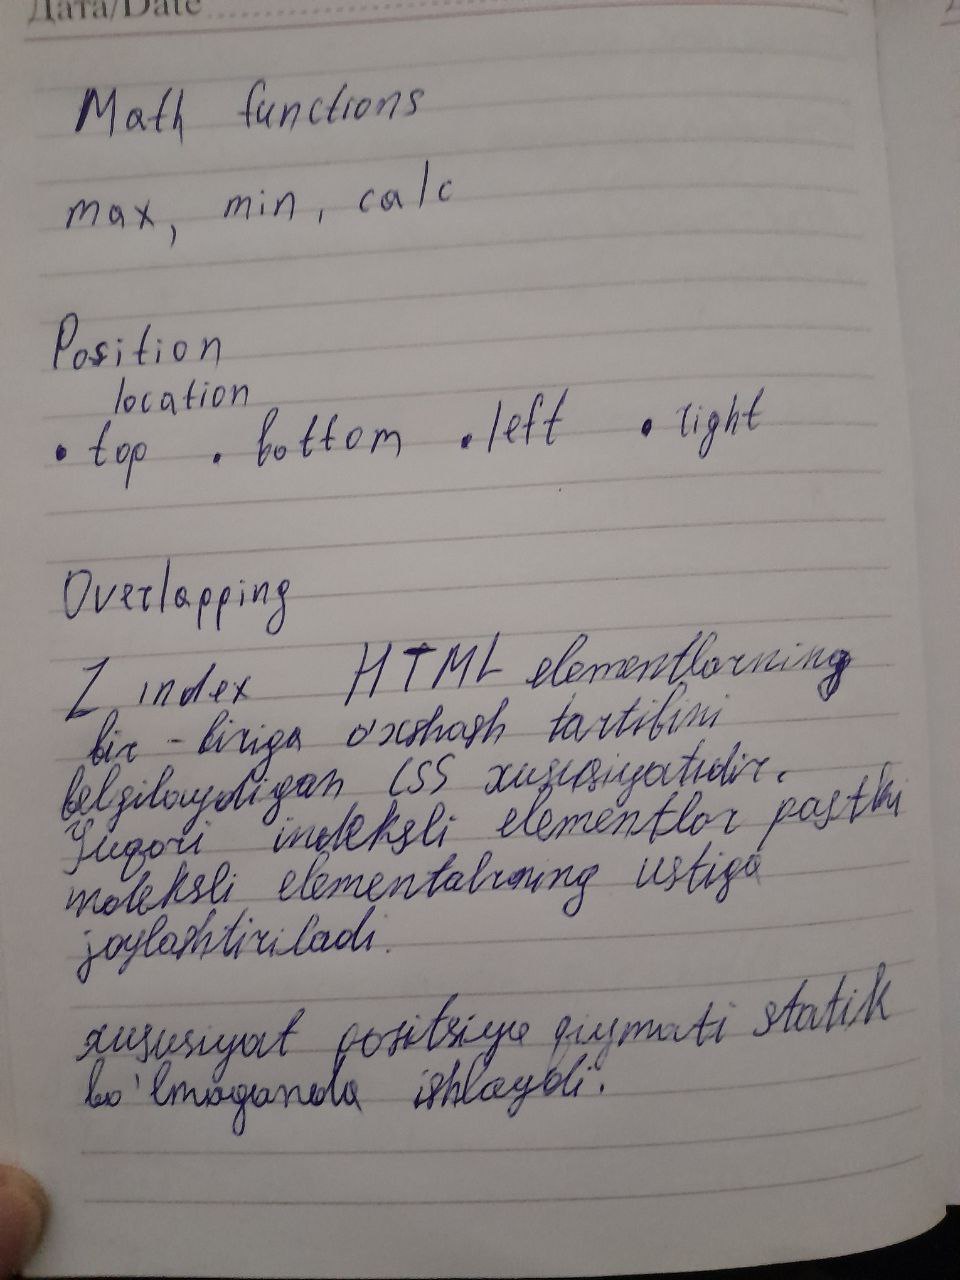 Дата/Date
Math functions
max, min, calc
Position
location
• top • bottom • left • right
Overlapping
Z index HTML elementlarning
bir - biriga o'xshash tartibini
belgilaydigan CSS xususiyatidir.
Yuqori indeksli elementlar pastki
indeksli elementalrning ustiga
joylashtiriladi.
xususiyat positsiya qiymati statik
bo'lmaganda ishlaydi.